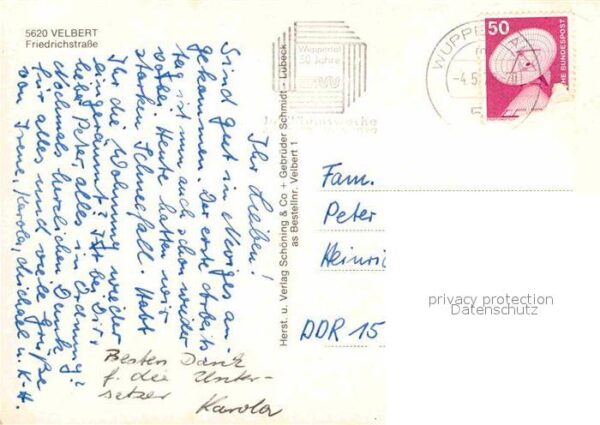 5620 VELBERT
Friedrichstraße
Ihr Lieben!
Sind gut in Neviges an-
gekommen. Der erste Arbeits
tag ist nun auch schon wieder
vorbei. Heute hatten wir
starken Schneefall. Habt
Ihr die Wohnung wieder
eingeräumt? Ist bei Dir,
lieber Peter, alles in Ordnung?
Nochmals herzlichen Dank
für alles und viele Grüße
von Irene, Karola, Michael u. K-H.
Besten Dank
f. die Unter-
setzer Karola
Herst. u. Verlag Schöning & Co + Gebrüder Schmidt - Lübeck
as Bestellnr. Velbert 1
Wuppertal
50 Jahre
Jubiläumswoche
WUPPERTAL
-4.5.
50
DEUTSCHE BUNDESPOST
Fam.
Peter
Heinric
DDR 15
privacy protection
Datenschutz